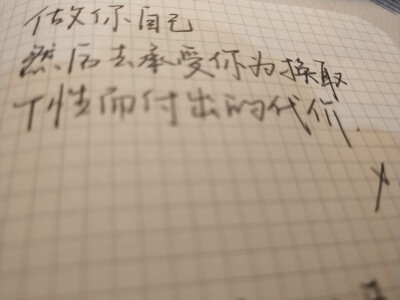 做你自己
然后去承受你为换取
个性而付出的代价.